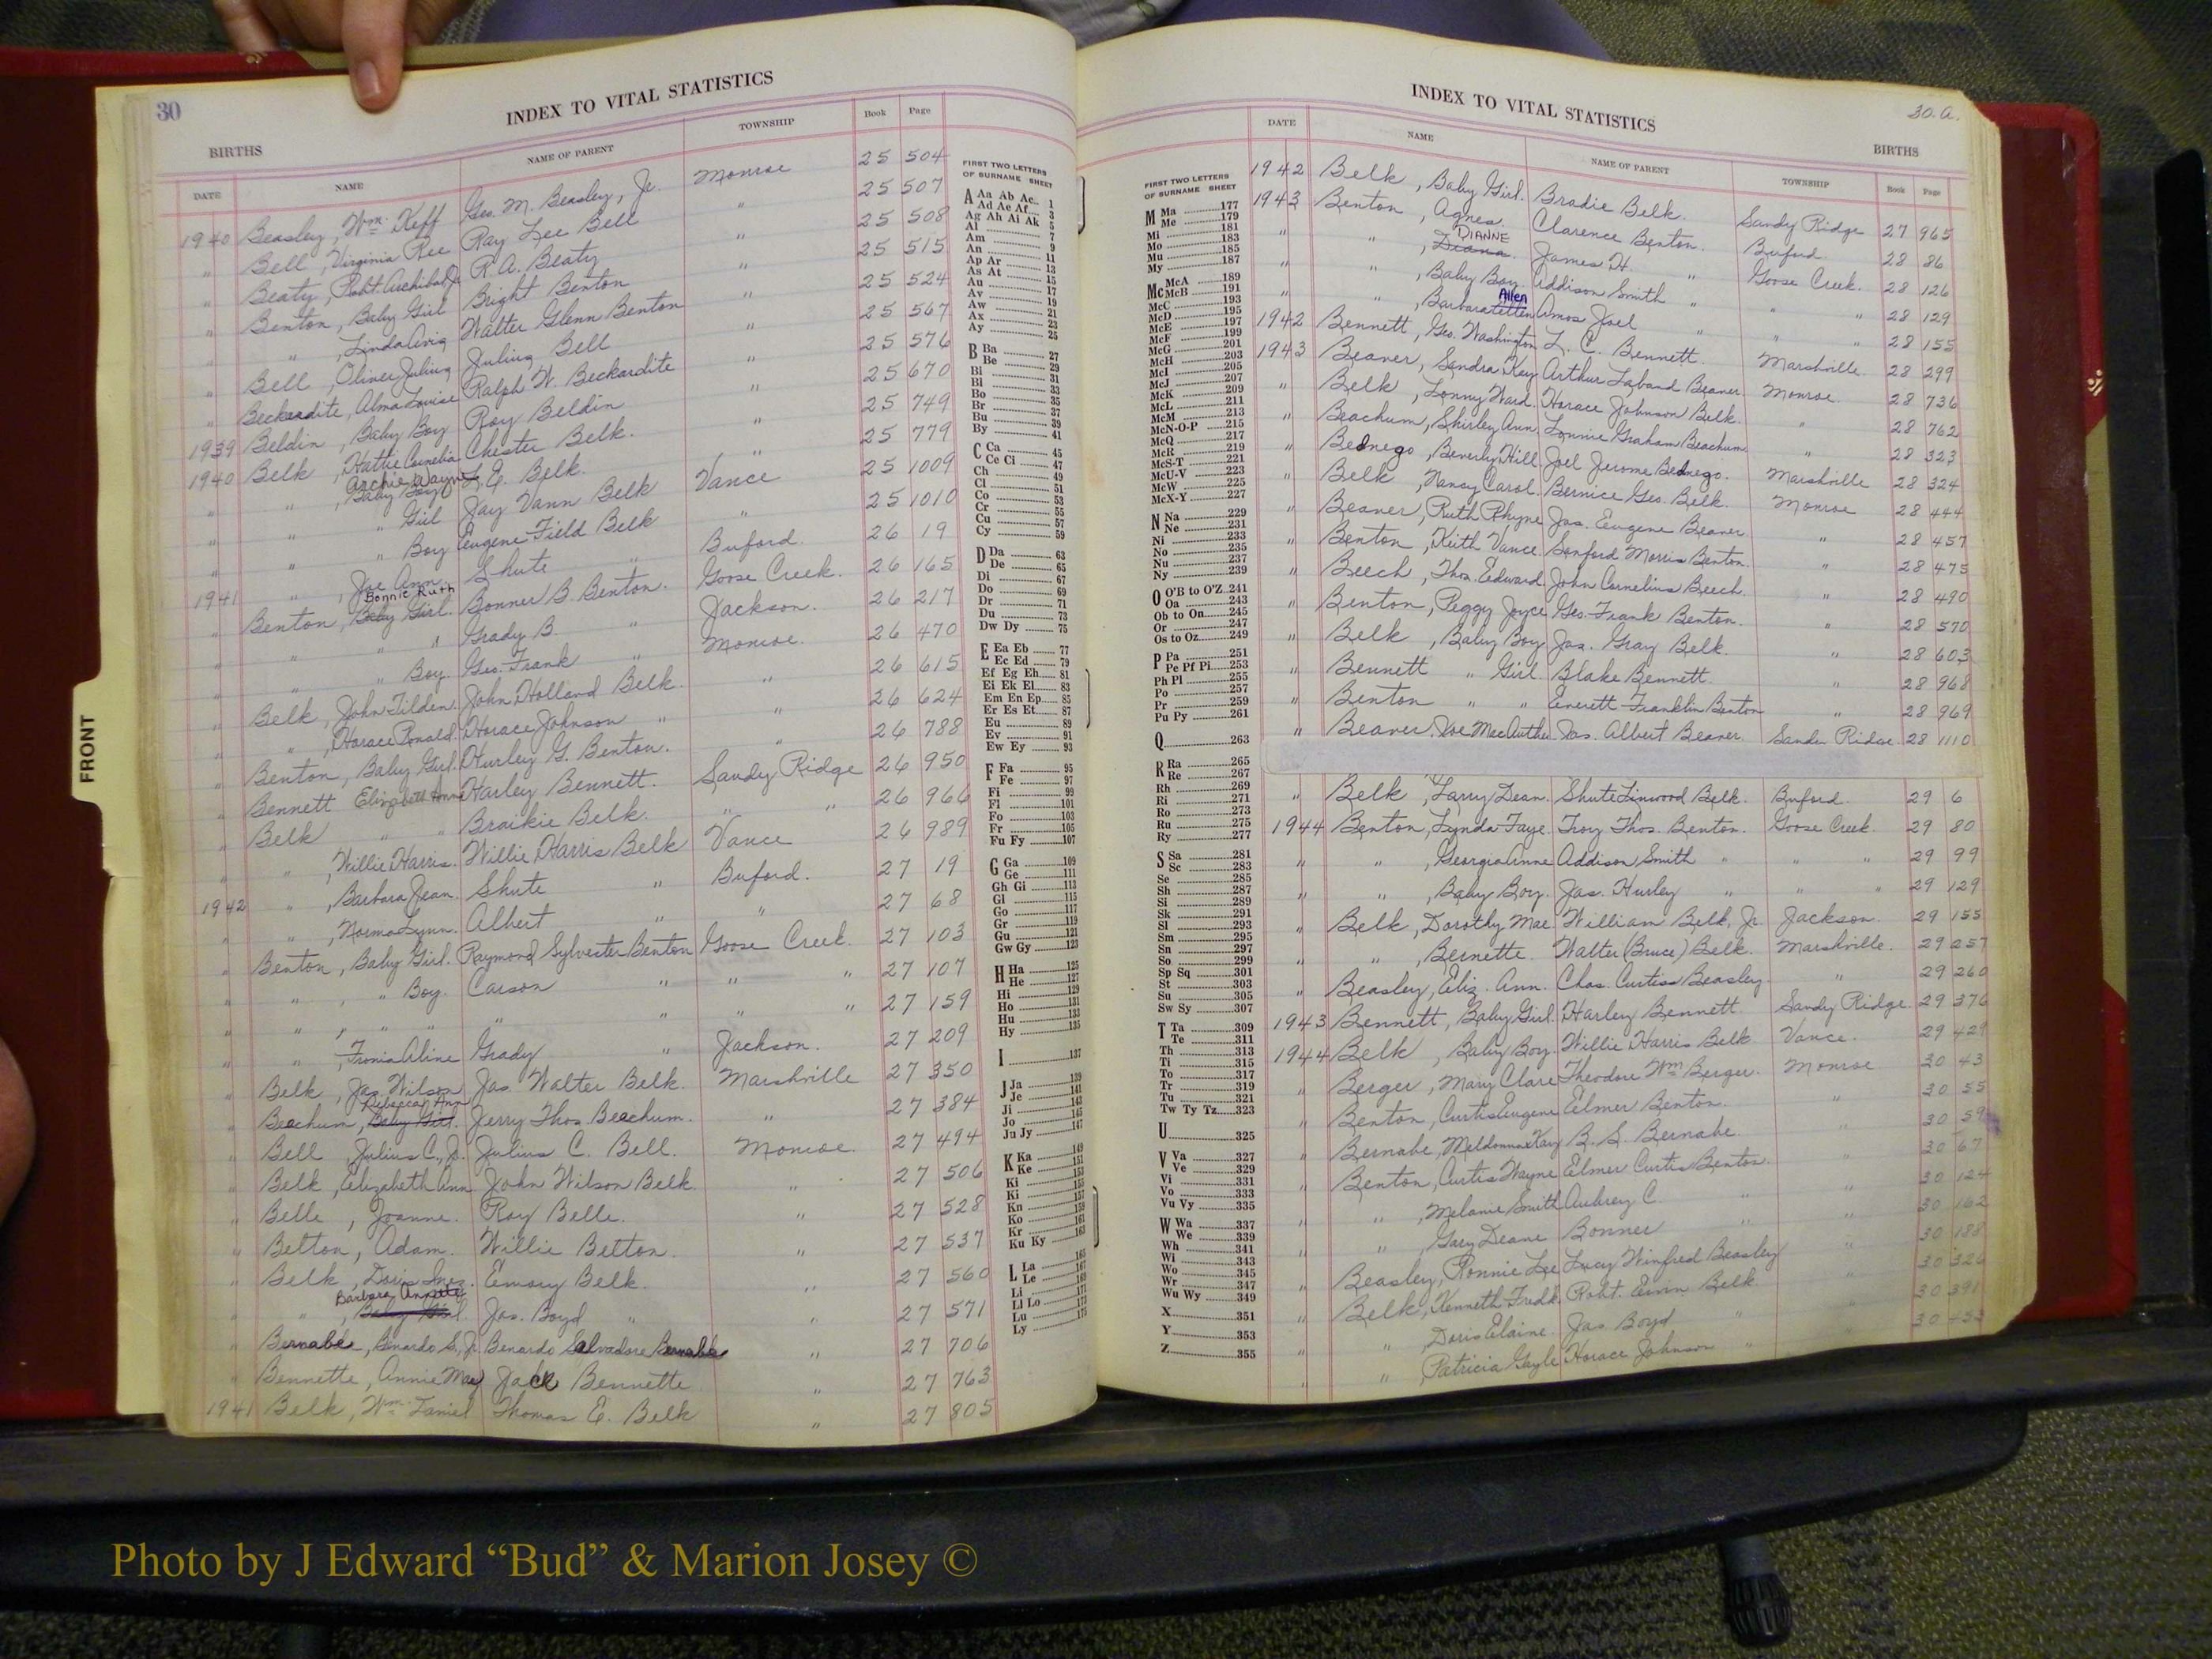 30
INDEX TO VITAL STATISTICS
BIRTHS
DATE NAME NAME OF PARENT TOWNSHIP Book Page
1940 Beasley, Wm. Keff Geo. M. Beasley, Jr. Monroe 25 504
" Bell, Virginia Ree Ray Lee Bell " 25 507
" Beaty, Robt. Archibald Jr. R. A. Beaty " 25 508
" Benton, Baby Girl Bright Benton " 25 515
" " , Linda Walter Glenn Benton " 25 524
" Bell, Oliver Julius Julius Bell " 25 567
" Beckerdite, Alma Louise Ralph W. Beckerdite " 25 576
1939 Beldin, Baby Boy Roy Beldin " 25 670
1940 Belk, Hattie Cornelia Chester Belk. " 25 749
" " , Baby Boy Archie Wayne L. E. Belk. " 25 779
" " " Girl Jay Vann Belk Vance 25 1009
" " " Boy Eugene Field Belk " 25 1010
1941 " , Joe Ann. Shute " Buford. 26 19
" Benton, Baby Girl. Bonnie Ruth Bonner B. Benton. Goose Creek. 26 165
" " " " Grady B. " Jackson. 26 217
" " " Boy. Geo. Frank " Monroe. 26 470
" Belk, John Tilden. John Holland Belk. " 26 615
" " , Horace Ronald. Horace Johnson " " 26 624
" Benton, Baby Girl. Hurley G. Benton. " 26 788
" Bennett Elizabeth Anne Harley Bennett. Sandy Ridge 26 950
" Belk " " Braikie Belk. " " 26 966
" " , Willie Harris. Willie Harris Belk Vance 26 989
1942 " , Barbara Jean. Shute " Buford. 27 19
" " , Norma Lynn. Albert " " 27 68
" Benton, Baby Girl. Raymond Sylvester Benton Goose Creek. 27 103
" " , " Boy. Carson " " " 27 107
" " , " " " " " " 27 159
" " , Fronia Aline Grady " Jackson. 27 209
" Belk, Jas. Wilson Jas. Walter Belk. Marshville 27 350
" Beachum, Baby Girl. Rebecca Ann Jerry Thos. Beachum. " 27 384
" Bell, Julius C., Jr. Julius C. Bell. Monroe. 27 494
" Belk, Elizabeth Ann John Wilson Belk. " 27 506
" Belle, Joanne. Roy Belle. " 27 528
" Belton, Adam. Willie Belton. " 27 537
" Belk, Doris Inez. Emory Belk. " 27 560
" " , Baby Girl. Barbara Annette Jas. Boyd " " 27 571
" Bernabe, Benardo S., Jr. Benardo Salvadore Bernabe " 27 706
" Bennette, Annie Mae Jack Bennette " 27 763
1941 Belk, Wm. Thomas E. Belk " 27 805
FIRST TWO LETTERS
OF SURNAME SHEET
A Aa Ab Ac 1
Ad Ae Af 3
Ag Ah Ai Ak 5
Al 7
Am 9
An 11
Ap Ar 13
As At 15
Au 17
Av 19
Aw 21
Ax 23
Ay 25
B Ba 27
Be 29
Bi 31
Bl 33
Bo 35
Br 37
Bu 39
By 41
C Ca 45
Ce Ci 47
Ch 49
Cl 51
Co 53
Cr 55
Cu 57
Cy 59
D Da 63
De 65
Di 67
Do 69
Dr 71
Du 73
Dw Dy 75
E Ea Eb 77
Ec Ed 79
Ef Eg Eh 81
Ei Ek El 83
Em En Ep 85
Er Es Et 87
Eu 89
Ev 91
Ew Ey 93
F Fa 95
Fe 97
Fi 99
Fl 101
Fo 103
Fr 105
Fu Fy 107
G Ga 109
Ge 111
Gh Gi 113
Gl 115
Go 117
Gr 119
Gu 121
Gw Gy 123
H Ha 125
He 127
Hi 129
Ho 131
Hu 133
Hy 135
I 137
J Ja 139
Je 141
Ji 143
Jo 145
Ju Jy 147
K Ka 149
Ke 151
Ki 153
Ki 155
Kn 157
Ko 159
Kr 161
Ku Ky 163
L La 165
Le 167
Li 169
Ll Lo 171
Lu 173
Ly 175
INDEX TO VITAL STATISTICS
30.a.
BIRTHS
FIRST TWO LETTERS
OF SURNAME SHEET
M Ma 177
Me 179
Mi 181
Mo 183
Mu 185
My 187
Mc McA 189
McB 191
McC 193
McD 195
McE 197
McF 199
McG 201
McH 203
McI 205
McJ 207
McK 209
McL 211
McM 213
McN-O-P 215
McQ 217
McR 219
McS-T 221
McU-V 223
McW 225
McX-Y 227
N Na 229
Ne 231
Ni 233
No 235
Nu 237
Ny 239
O O'B to O'Z 241
Oa 243
Ob to On 245
Or 247
Os to Oz 249
P Pa 251
Pe Pf Pi 253
Ph Pl 255
Po 257
Pr 259
Pu Py 261
Q 263
R Ra 265
Re 267
Rh 269
Ri 271
Ro 273
Ru 275
Ry 277
S Sa 281
Sc 283
Se 285
Sh 287
Si 289
Sk 291
Sl 293
Sm 295
Sn 297
So 299
Sp Sq 301
St 303
Su 305
Sw Sy 307
T Ta 309
Te 311
Th 313
Ti 315
To 317
Tr 319
Tu 321
Tw Ty Tz 323
U 325
V Va 327
Ve 329
Vi 331
Vo 333
Vu Vy 335
W Wa 337
We 339
Wh 341
Wi 343
Wo 345
Wr 347
Wu Wy 349
X 351
Y 353
Z 355
DATE NAME NAME OF PARENT TOWNSHIP Book Page
1942 Belk, Baby Girl. Bradie Belk. Sandy Ridge 27 965
1943 Benton, Agnes. Clarence Benton. Buford. 28 86
" " , Diana. DIANNE James H. " Goose Creek. 28 126
" " , Baby Boy. Addison Smith " " " 28 129
" " , Barbara Allen Amos Joel " " " 28 155
1942 Bennett, Geo. Washington L. C. Bennett. Marshville. 28 299
1943 Beaver, Sandra Kay Arthur Laband Beaver Monroe. 28 736
" Belk, Lonny Ward. Horace Johnson Belk. " 28 762
" Beachum, Shirley Ann. Lonnie Graham Beachum " 28 323
" Bednego, Beverly Hill Joel Jerome Bednego. Marshville 28 324
" Belk, Nancy Carol. Bernice Geo. Belk. Monroe 28 444
" Beaver, Ruth Rhyne Jas. Eugene Beaver " 28 457
" Benton, Keith Vance. Sanford Morris Benton. " 28 475
" Beech, Thos. Edward. John Cornelius Beech. " 28 490
" Benton, Peggy Joyce Geo. Frank Benton. " 28 570
" Belk, Baby Boy Jas. Gray Belk. " 28 603
" Bennett " Girl Blake Bennett. " 28 968
" Benton " " Everett Franklin Benton " 28 969
" Beaver, Joe MacAuthur Jas. Albert Beaver Sandy Ridge. 28 1110
" Belk, Larry Dean. Shute Linwood Belk. Buford. 29 6
1944 Benton, Lynda Faye. Troy Thos. Benton. Goose Creek. 29 80
" " , Georgia Anne Addison Smith " " " 29 99
" " , Baby Boy. Jas. Hurley " " " 29 129
" Belk, Dorothy Mae. William Belk, Jr. Jackson. 29 155
" " , Bernette. Walter (Bruce) Belk. Marshville. 29 257
" Beasley, Eliz. Ann. Chas. Curtiss Beasley. " 29 260
1943 Bennett, Baby Girl. Harley Bennett. Sandy Ridge. 29 376
1944 Belk, Baby Boy. Willie Harris Belk. Vance. 29 429
" Berger, Mary Clare Theodore Wm. Berger. Monroe 30 43
" Benton, Curtis Eugene Elmer Benton. " 30 55
" Bernabe, Kay B. S. Bernabe. " 30 59
" Benton, Curtis Wayne Elmer Curtis Benton. " 30 67
" " , Melanie Smith Aubrey C. " " 30 124
" " , Gary Deane Bonner " " 30 162
" Beasley, Ronnie Lee Lucy Winfred Beasley " 30 188
" Belk, Kenneth Fredk. Robt. Ervin Belk. " 30 326
" " , Doris Elaine. Jas. Boyd " " 30 391
" " , Patricia Gayle Horace Johnson " " 30 453
FRONT
Photo by J Edward “Bud” & Marion Josey ©